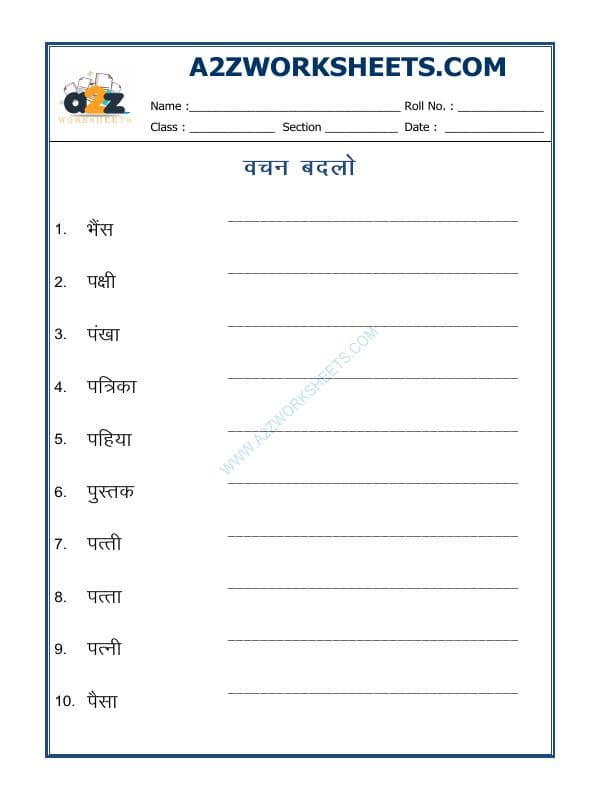 A2ZWORKSHEETS.COM
a2z
WORKSHEETS
Name :______________________________ Roll No. : ____________
Class : ____________ Section __________ Date : ______________
वचन बदलो
1. भैंस ______________________________
2. पक्षी ______________________________
3. पंखा ______________________________
4. पत्रिका ______________________________
5. पहिया ______________________________
6. पुस्तक ______________________________
7. पत्ती ______________________________
8. पत्ता ______________________________
9. पत्नी ______________________________
10. पैसा ______________________________
WWW.A2ZWORKSHEETS.COM